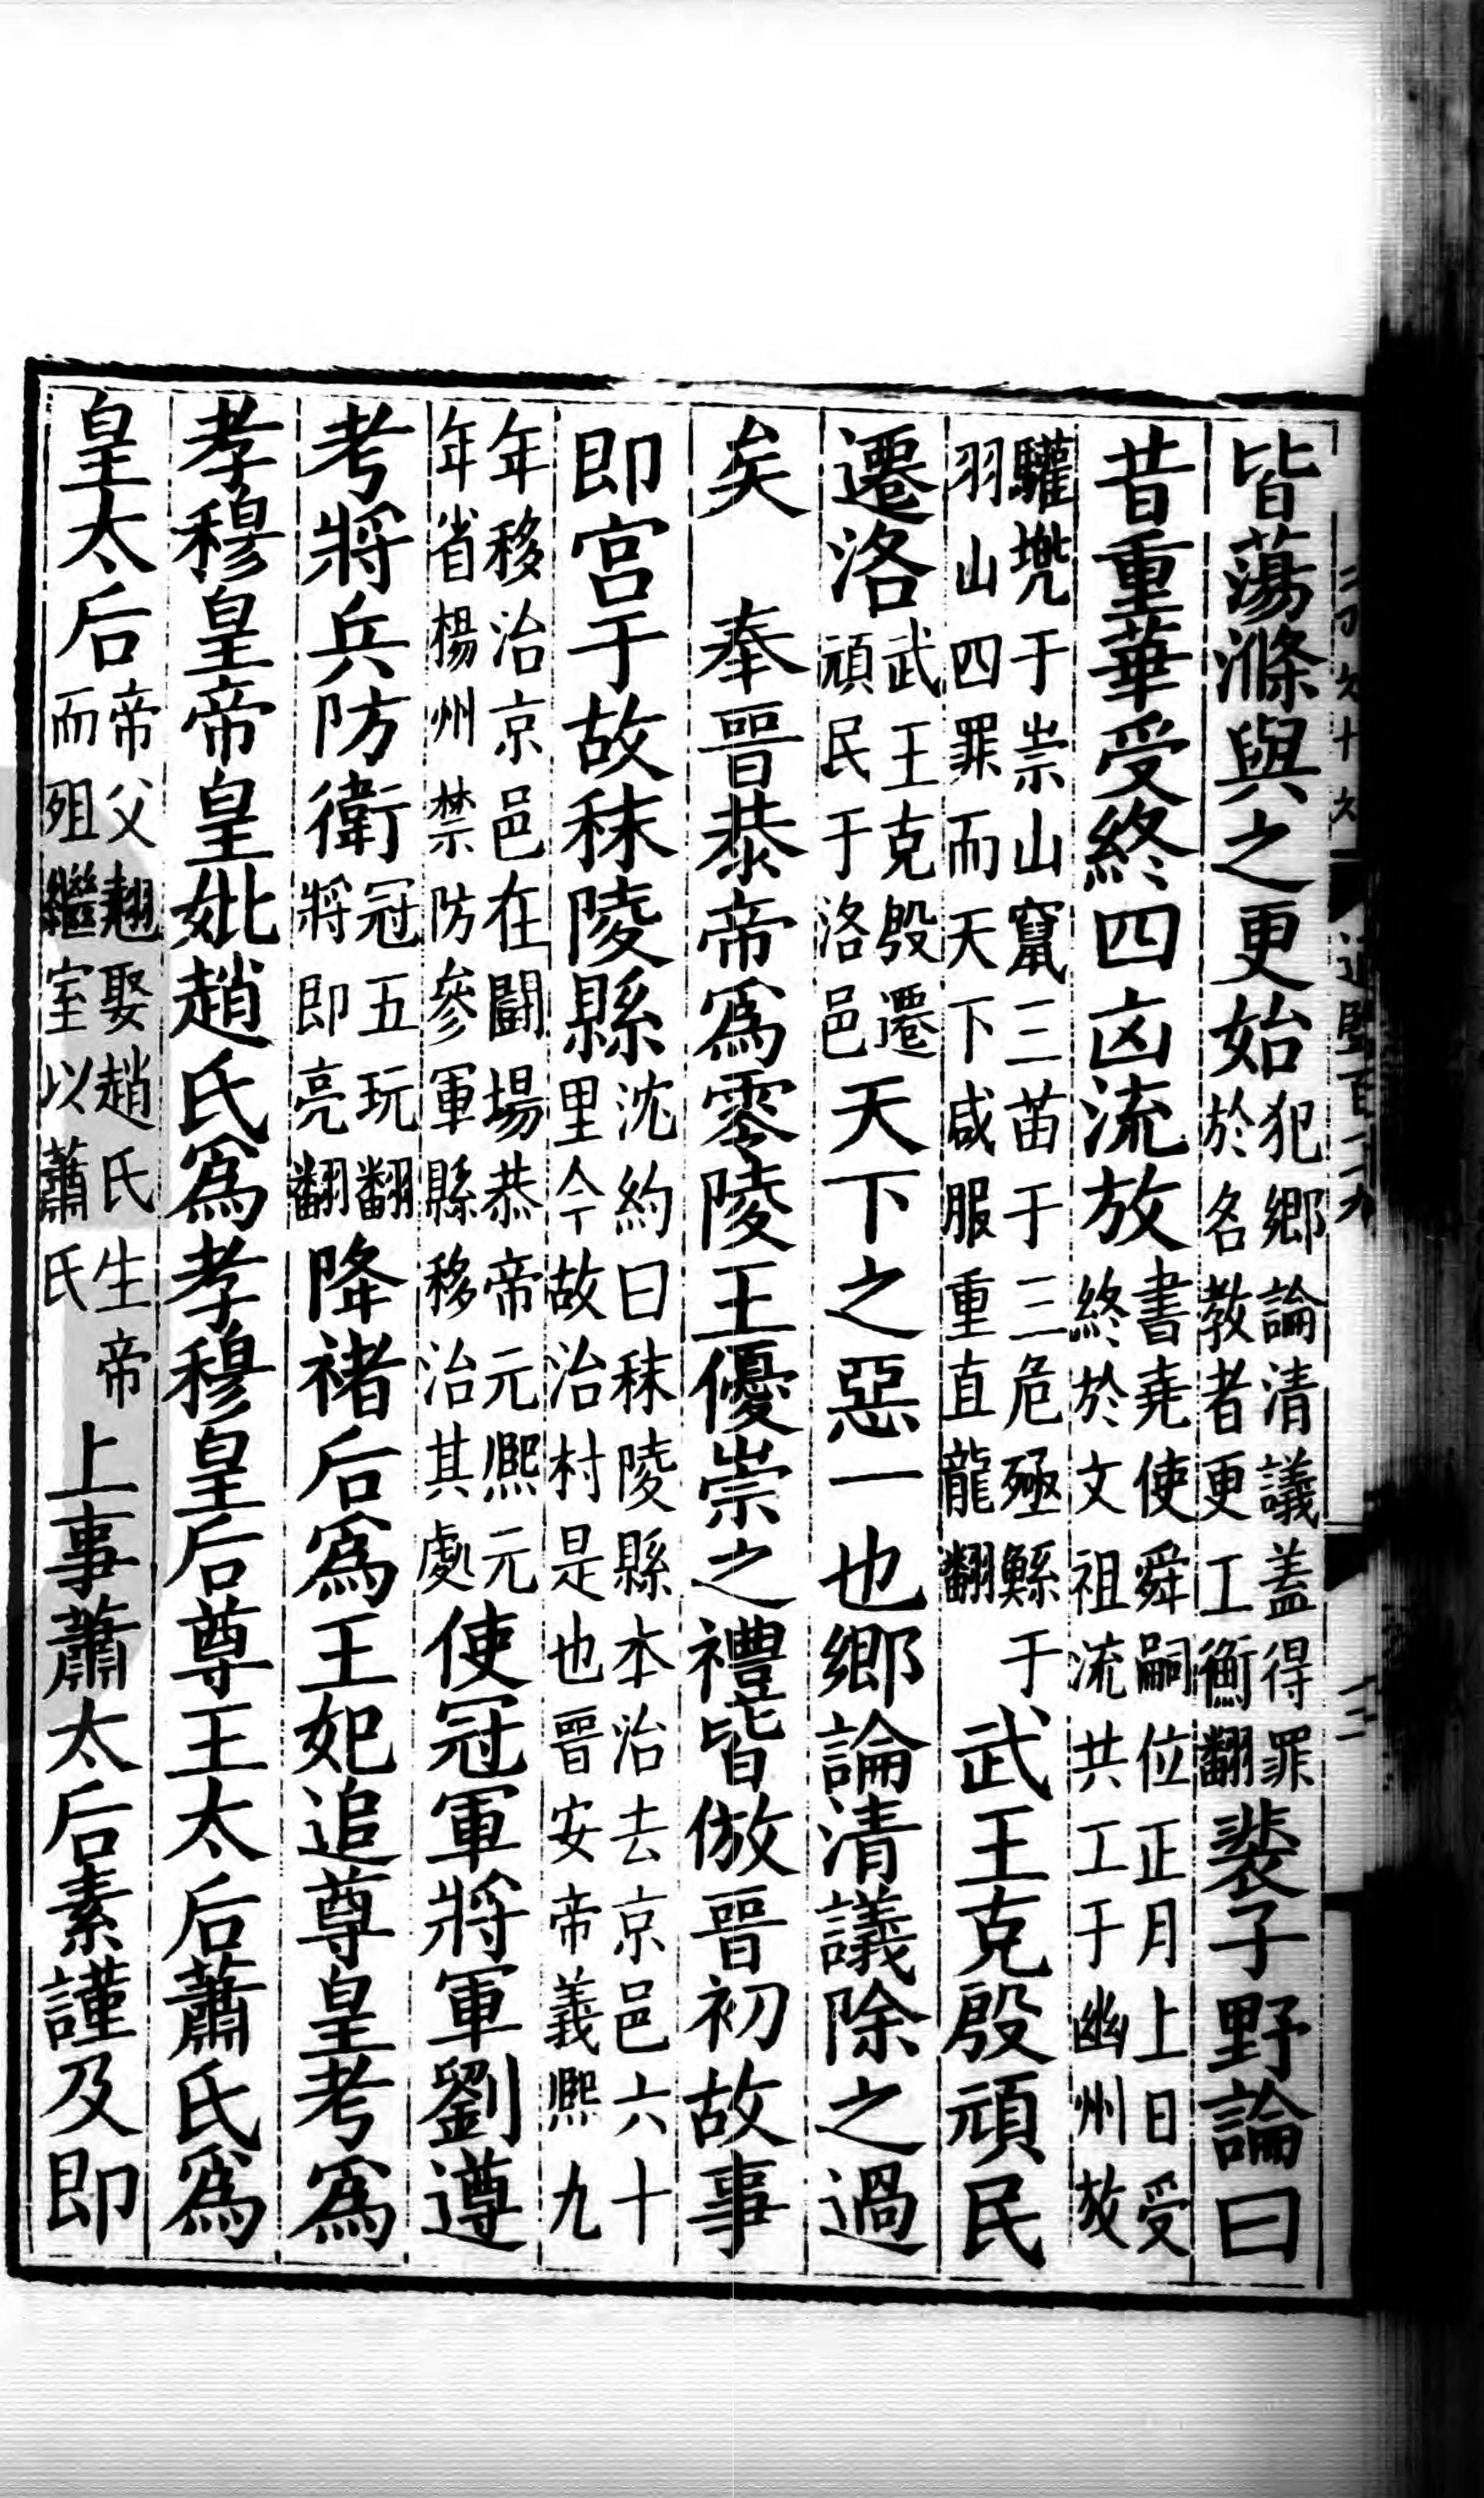 皆蕩滌與之更始犯鄉論清議蓋得罪於名教者更工衡翻裴子野論曰
昔重華受終四凶流放書堯使舜嗣位正月上日受終於文祖流共工于幽州放
驩兠于崇山竄三苗于三危殛鯀于羽山四罪而天下咸服重直龍翻武王克殷頑民
遷洛武王克殷遷頑民于洛邑天下之惡一也鄉論清議除之過
矣　奉晉恭帝爲零陵王優崇之禮皆倣晉初故事
即宮于故秣陵縣沈約曰秣陵縣本治去京邑六十里今故治村是也晉安帝義熙九
年移治京邑在鬬場恭帝元熙元年省楊州禁防參軍縣移治其處使冠軍將軍劉遵
考將兵防衛冠五玩翻將即亮翻降褚后爲王妃追尊皇考爲
孝穆皇帝皇妣趙氏爲孝穆皇后尊王太后蕭氏爲
皇太后帝父翹娶趙氏生帝而殂繼室以蕭氏上事蕭太后素謹及即